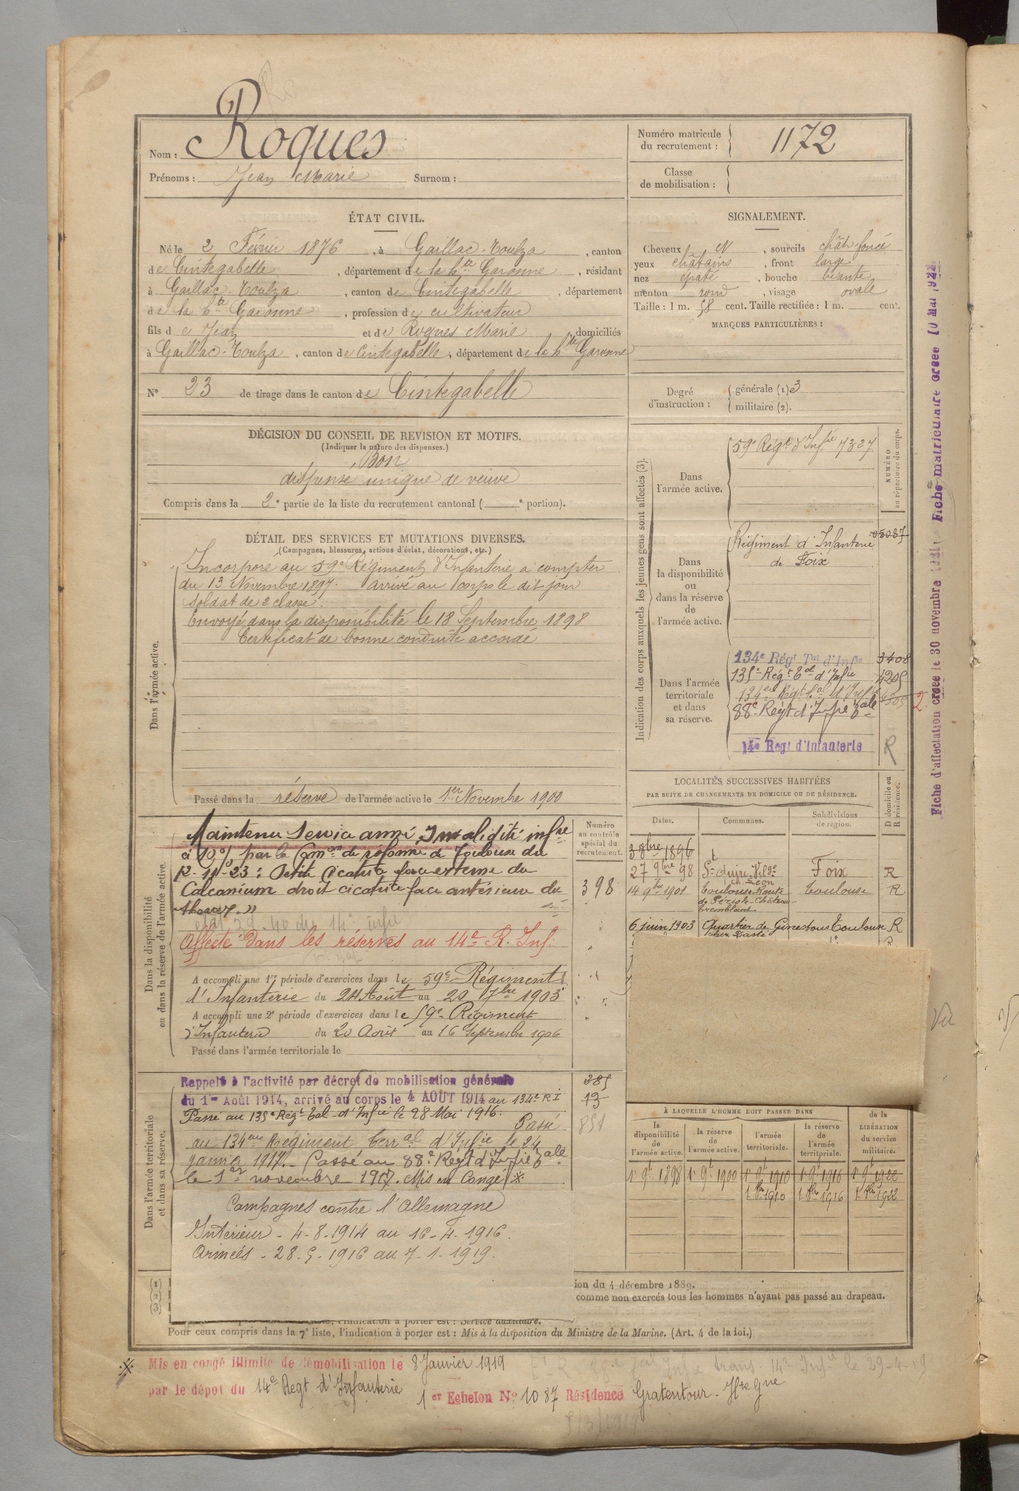 Nom : Roques
Prénoms : Jean Marie Surnom :
Numéro matricule du recrutement : 1172
Classe de mobilisation :
ÉTAT CIVIL.
Né le 2 Février 1876, à Gaillac-Toulza, canton
de Cintegabelle, département de la Hte Garonne, résidant
à Gaillac Toulza, canton de Cintegabelle, département
de la Hte Garonne, profession de cultivateur
fils de Jean et de Roques Marie, domiciliés
à Gaillac-Toulza, canton de Cintegabelle, département de la Hte Garonne
N° 23 de tirage dans le canton de Cintegabelle
SIGNALEMENT.
Cheveux ct, sourcils chât foncé
yeux chatains, front large
nez épaté, bouche béante
menton rond, visage ovale
Taille : 1 m. 58 cent. Taille rectifiée : 1 m. cent.
MARQUES PARTICULIÈRES :
Degré d'instruction : générale (1) 3
militaire (2).
DÉCISION DU CONSEIL DE REVISION ET MOTIFS.
(Indiquer la nature des dispenses.)
Bon
dispensé, unique de veuve
Compris dans la 2e partie de la liste du recrutement cantonal ( e portion).
DÉTAIL DES SERVICES ET MUTATIONS DIVERSES.
(Campagnes, blessures, actions d'éclat, décorations, etc.)
Dans l'armée active.
Incorporé au 59e Régiment d'Infanterie à compter
du 13 Novembre 1897. arrivé au corps le dit jour
soldat de 2e classe.
Envoyé dans la disponibilité le 18 Septembre 1898
Certificat de bonne conduite accordé
Passé dans la réserve de l'armée active le 1er Novembre 1900
Indication des corps auxquels les jeunes gens sont affectés (3).
NUMÉRO au répertoire du corps.
Dans l'armée active.
59e Régt d'Infie 7327
Dans la disponibilité ou dans la réserve de l'armée active.
Régiment d'Infanterie
de Foix
Dans l'armée territoriale et dans sa réserve.
134e Régt Tal d'Infie 3408
135e Régt Tal d'Infie 4205
88e Régt d'Infie Tale
14e Regt d'Infanterie R
LOCALITÉS SUCCESSIVES HABITÉES
PAR SUITE DE CHANGEMENTS DE DOMICILE OU DE RÉSIDENCE.
Dates. Communes. Subdivisions de région. D domicile ou R résidence.
3 8bre 1896
27 9bre 98 Foix R
14 9bre 1901 Toulouse R
6 juin 1903 Toulouse R
Dans la disponibilité ou dans la réserve de l'armée active.
Numéro au contrôle spécial du recrutement.
398
Maintenu service armé Invalidité infre
à 10% par la Comon de réforme de Toulouse du
12-11-23 : Petite cicatrice face externe du
Calcanium droit cicatrice face antérieure du
thorax. »
Affecté dans les réserves au 14e R. Inf.
A accompli une 1re période d'exercices dans le 59e Régiment
d'Infanterie du 24 Août au 20 7bre 1903
A accompli une 2e période d'exercices dans le 59e Régiment
d'Infanterie du 20 Août au 16 Septembre 1906
Passé dans l'armée territoriale le
Dans l'armée territoriale et dans sa réserve.
Rappelé à l'activité par décret de mobilisation générale
du 1er Août 1914, arrivé au corps le 4 AOUT 1914 au 134e RI
Passé au 135e Régt Tal d'Infie le 28 Mai 1916. Passé
au 134eme Régiment Terral d'Infie le 24
janvier 1917. Passé au 88e Régt d'Infie Tale
le 1er novembre 1917. Mis en Congé ※
Campagnes contre l'Allemagne
Intérieur - 4-8-1914 au 16-4-1916.
Armées - 28-5-1916 au 7-1-1919.
385
13
A LAQUELLE L'HOMME DOIT PASSER DANS
la disponibilité de l'armée active. la réserve de l'armée active. l'armée territoriale. la réserve de l'armée territoriale. de la LIBÉRATION du service militaire.
ion du 4 décembre 1889.
comme non exercés tous les hommes n'ayant pas passé au drapeau.
Pour ceux compris dans la 7e liste, l'indication à porter est : Mis à la disposition du Ministre de la Marine. (Art. 4 de la loi.)
※ Mis en congé illimité de démobilisation le 8 Janvier 1919
par le dépot du 14e Regt d'Infanterie
1er Echelon N° 1087 Résidence Gratentour - Hte Gne
Fiche d'affectation créée le 30 novembre Fiche matriculaire créée 10 Mai 1922